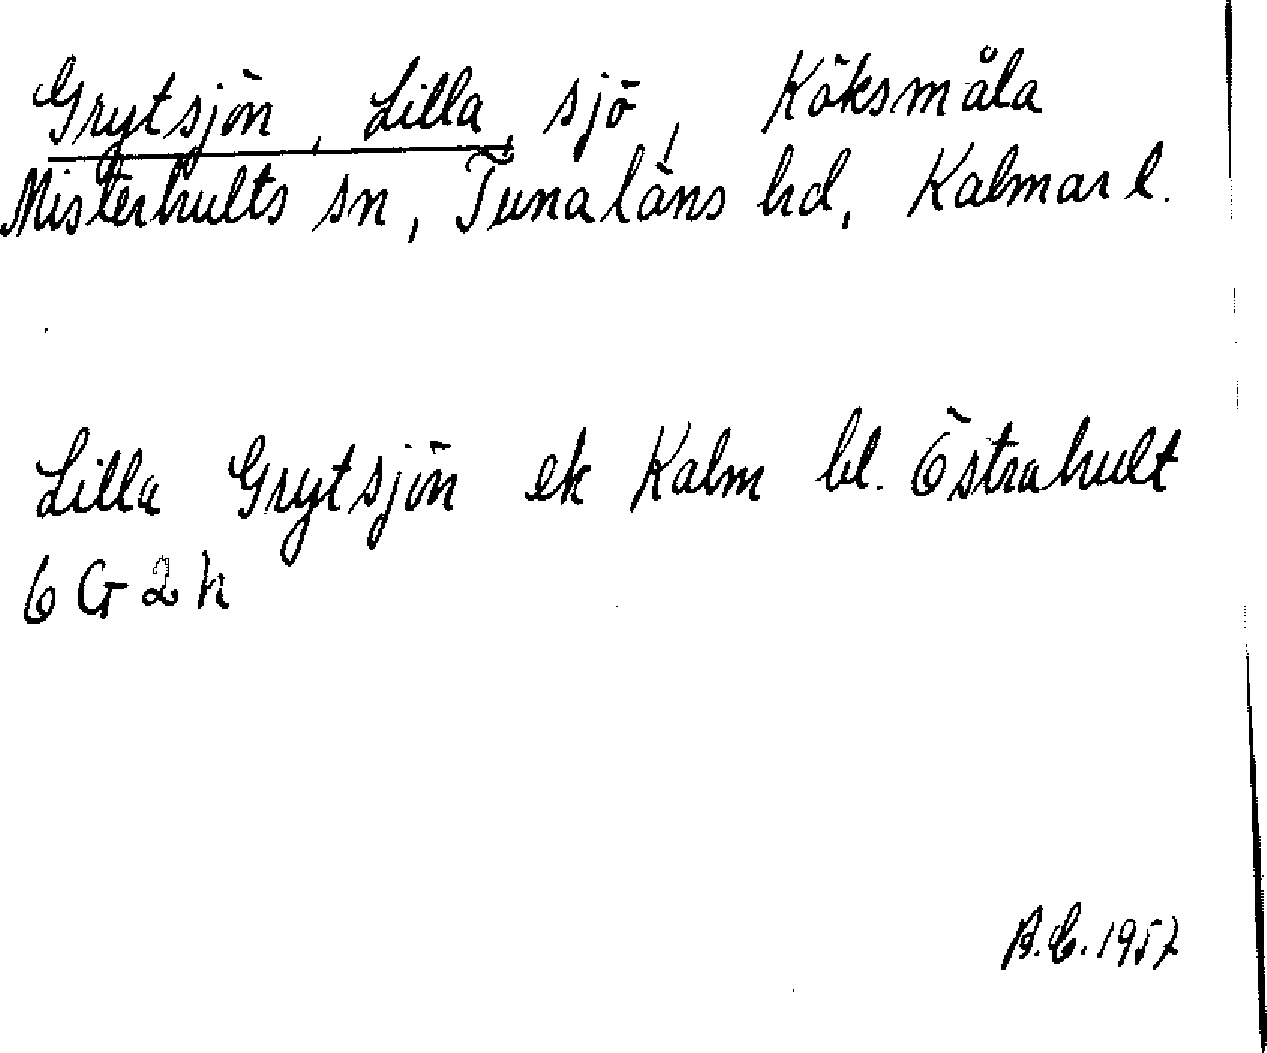 Grytsjön, Lilla, sjö, Köksmåla
Misterhults sn, Tunaläns hd, Kalmar l.
Lilla Grytsjön ek Kalm bl. Östrahult
6 G 2 h
B.E. 1957